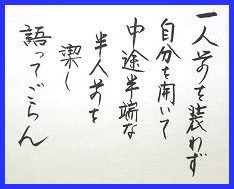 一人前を装わず
自分を開いて
中途半端な
半人前を
潔く
語ってごらん